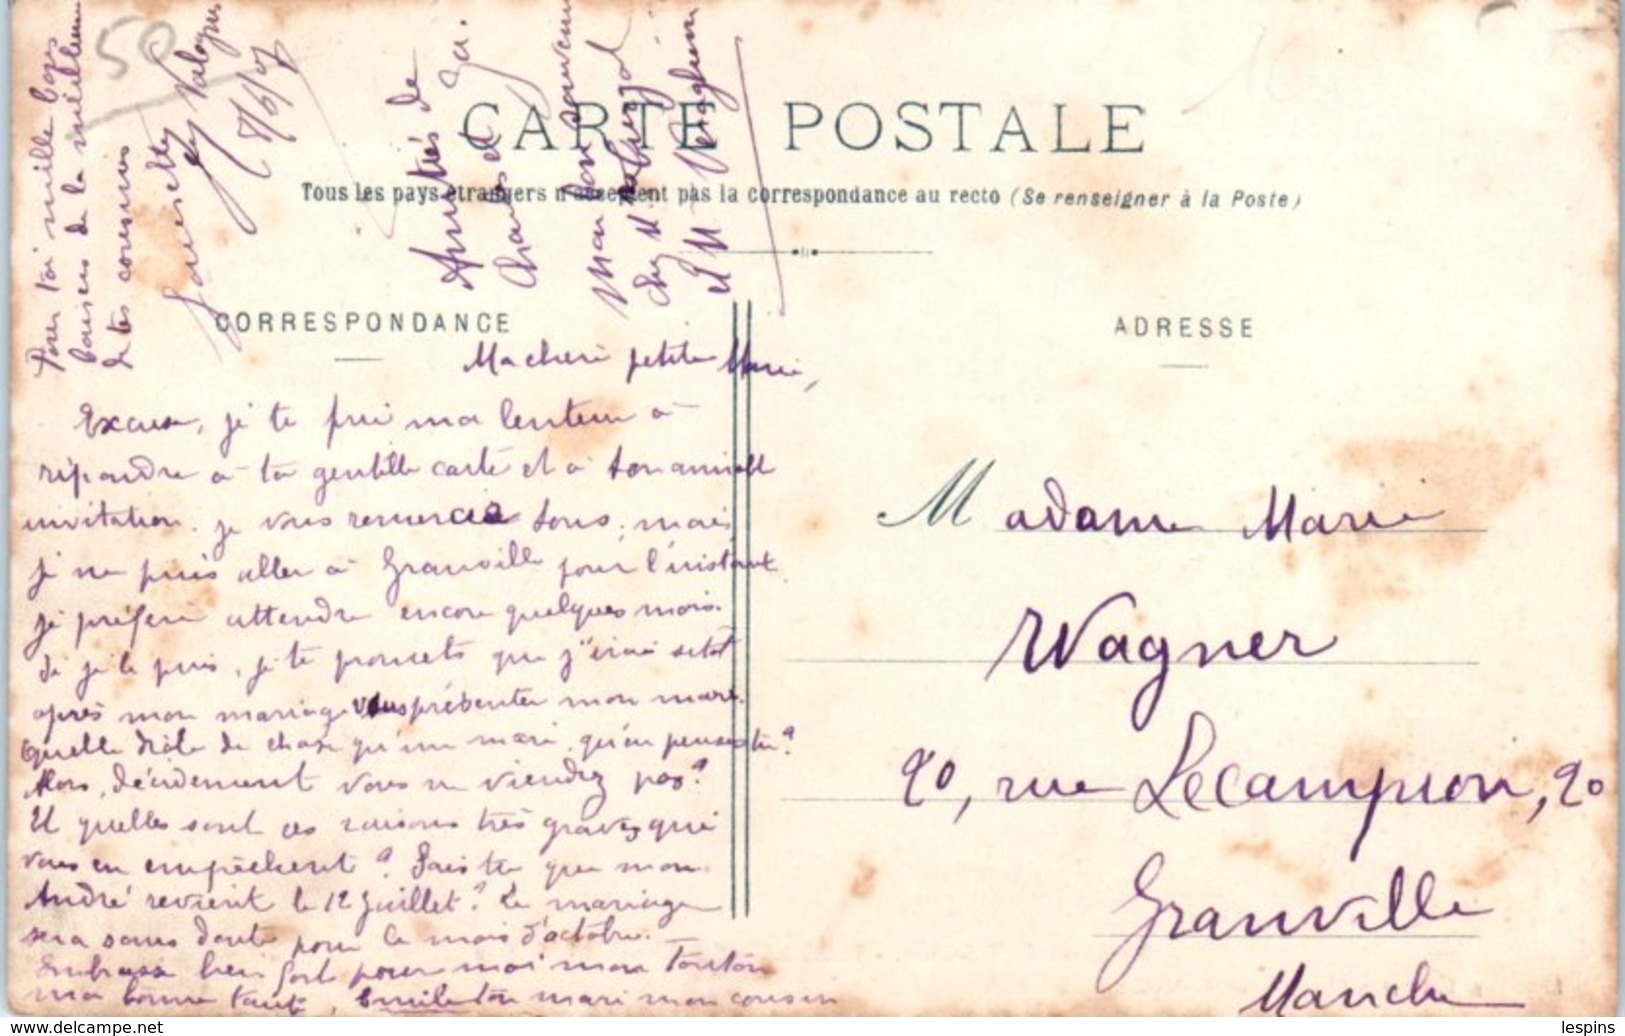 CARTE POSTALE
Tous les pays étrangers n'acceptent pas la correspondance au recto (Se renseigner à la Poste)
CORRESPONDANCE
ADRESSE
Ma cherie petite Marie,
Excuse, je te prie ma lenteur à
répondre à ta gentille carte et à ton amicale
invitation. je vous remercie tous, mais
je ne puis aller à Granville pour l'instant
je préfère attendre encore quelques mois.
Si je le puis, je te promets que j'irai sitôt
après mon mariage vous présenter mon mari.
Quelle drôle de chose qu'un mari, qu'en penses-tu?
Alors, décidément vous ne viendrez pas?
Et quelles sont ces raisons très graves qui
vous en empêchent? Sais-tu que mon
André revient le 12 Juillet? Le mariage
sera sans doute pour le mois d'octobre.
Embrasse bien fort pour moi mon Tonton
ma bonne tante, Emile ton mari mon cousin
Pour toi mille bons
baisers de la meilleure
de tes cousines
Valognes
7/6/07
Amitiés de
Charles et
Mon bon souvenir
chez M.
et M.
Madame Marie
Wagner
20, rue Lecampion, 20
Granville
Manche
50
lespins
www.delcampe.net